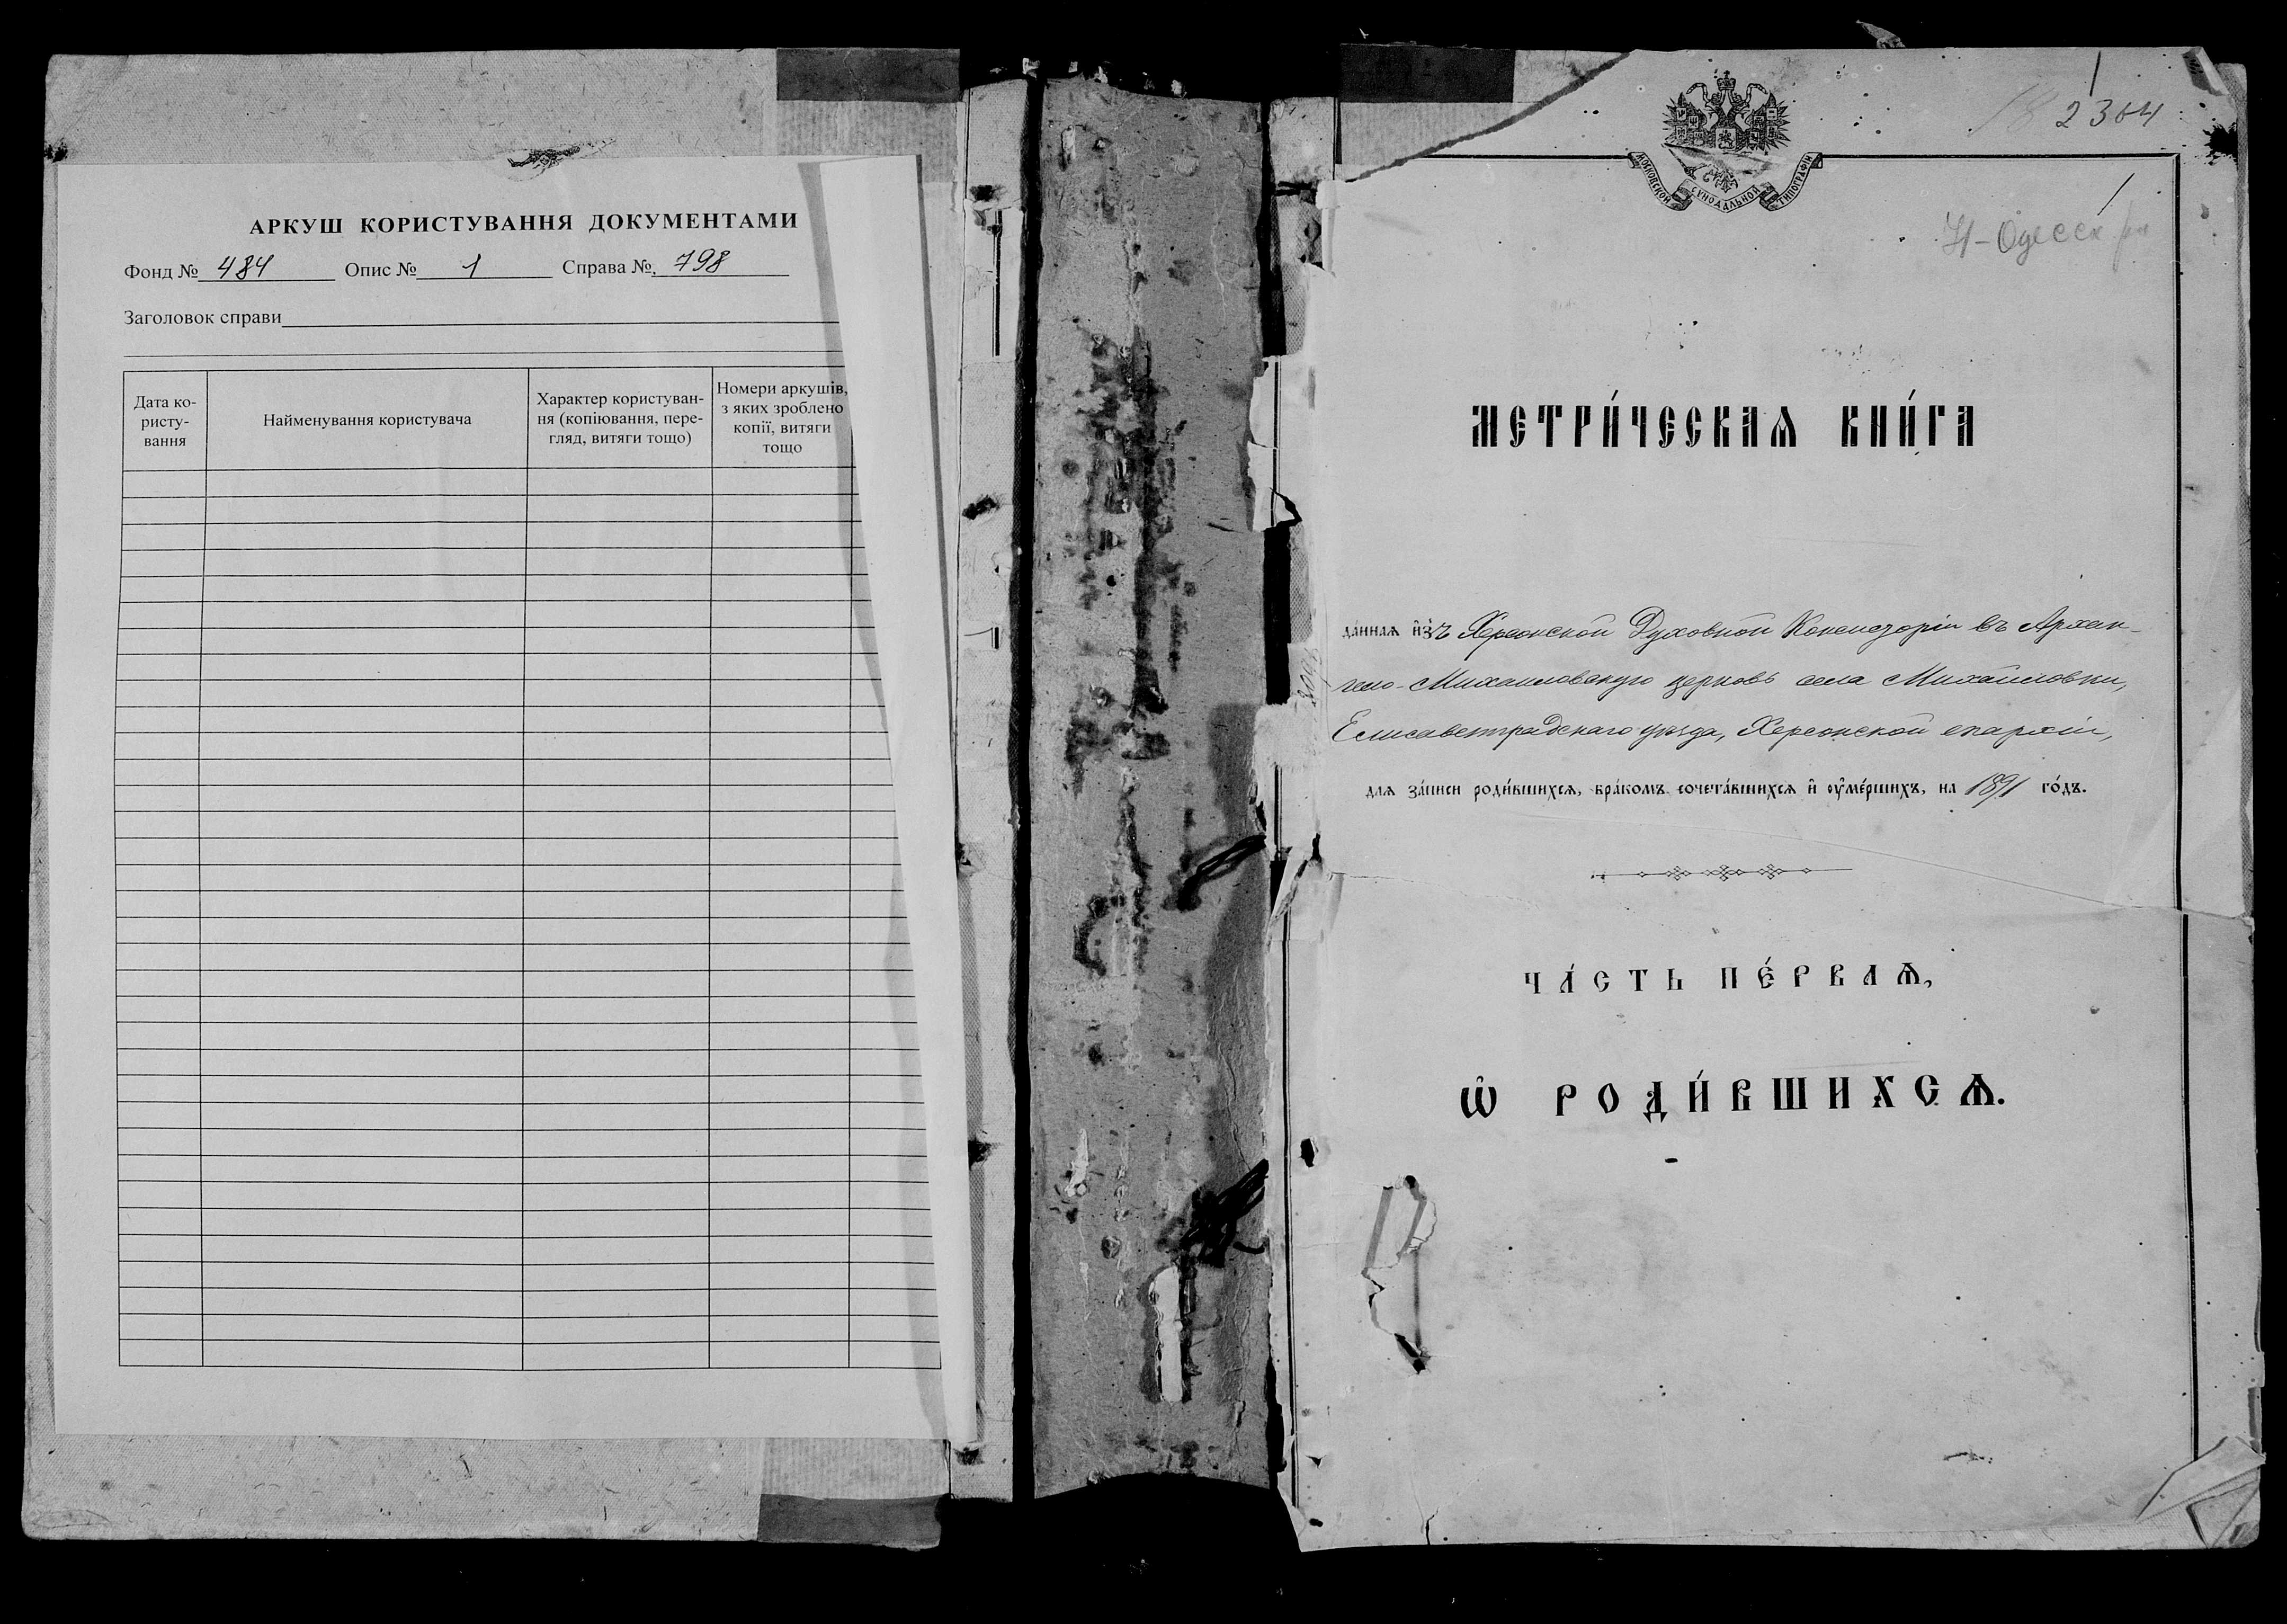 АРКУШ КОРИСТУВАННЯ ДОКУМЕНТАМИ
Фонд № 484 Опис № 1 Справа № 798
Заголовок справи
Дата ко-
ристу-
вання
Найменування користувача
Характер користуван-
ня (копіювання, пере-
гляд, витяги тощо)
Номери аркушів,
з яких зроблено
копії, витяги
тощо
1
2304
МОСКОВСКОЙ СИНОДАЛЬНОЙ ТИПОГРАФІИ
Н-Одесск
МЕТРИ́ЧЕСКАѦ КНИ́ГА
да́ннаѧ и҆зъ Херсонской Духовной Консисторіи въ Архан-
гело-Михаиловскую церковь села Михайловки,
Елисаветградскаго уѣзда, Херсонской епархіи,
для за́писи роди́вшихсѧ, бра́комъ сочета́вшихсѧ и҆ ᲂу҆ме́ршихъ, на 1891 го́дъ.
ЧА́СТЬ ПЕ́РВАѦ,
Ѡ҆ РОДИ́ВШИХСѦ.